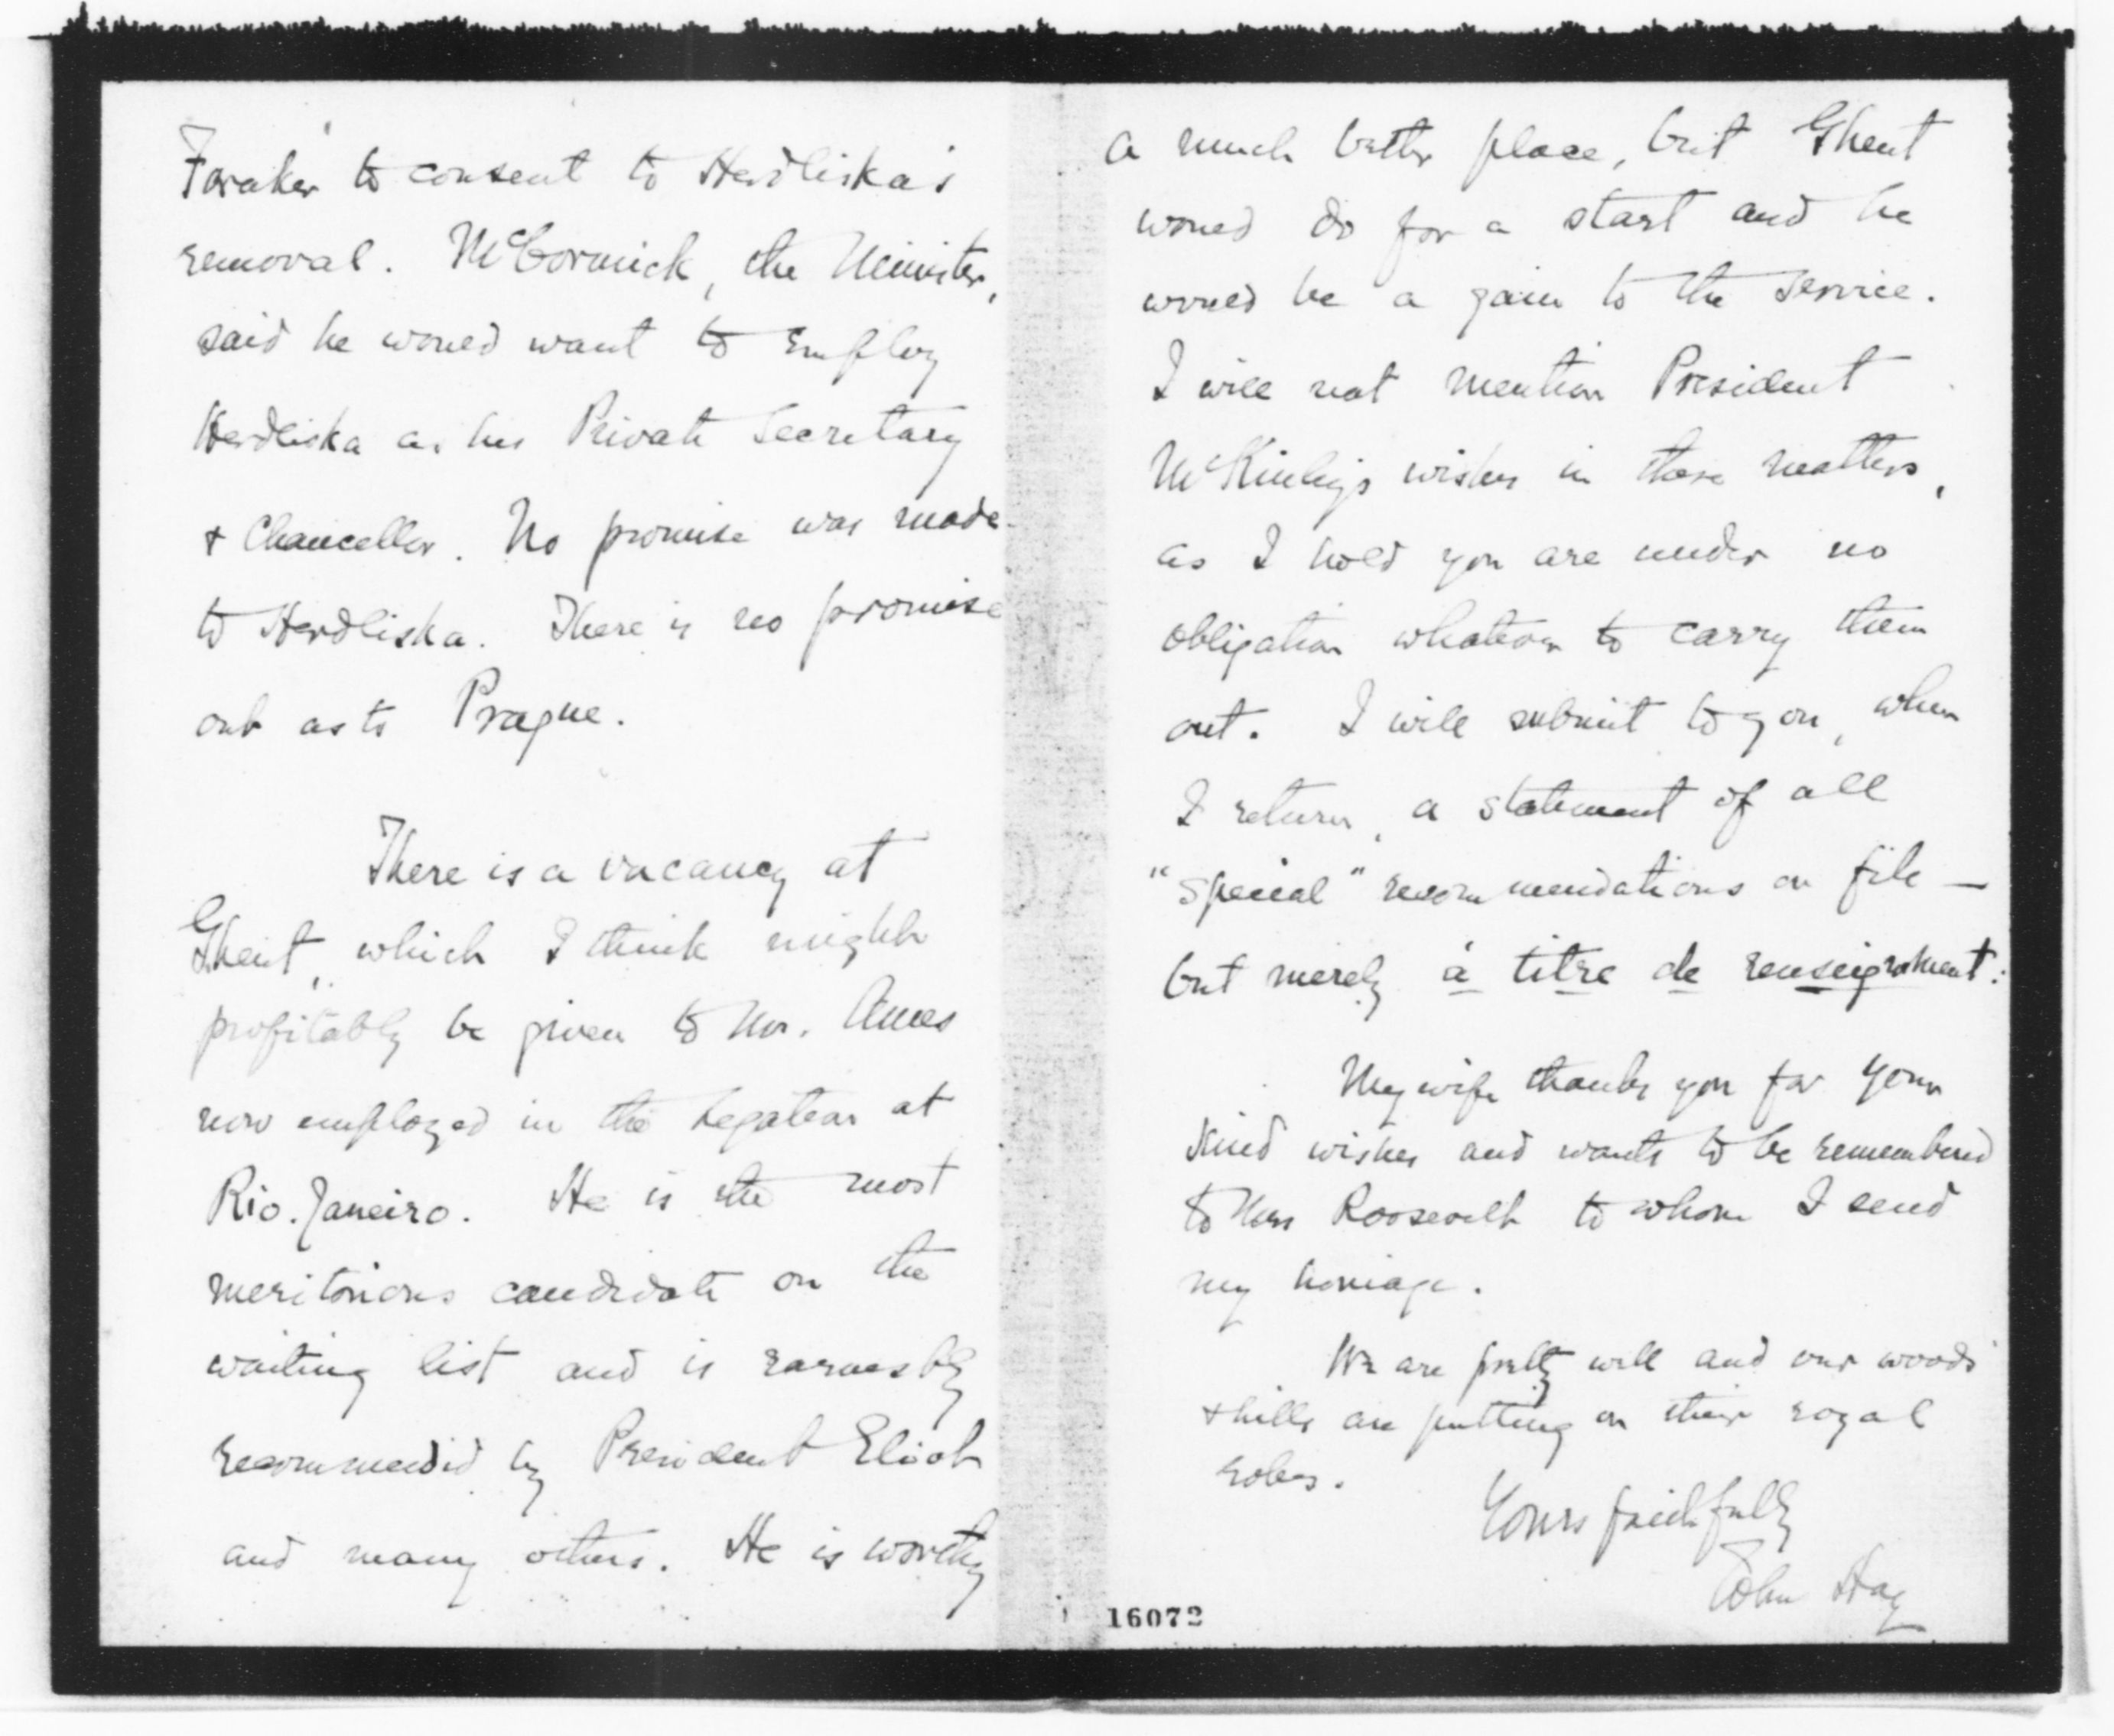 Foraker to consent to Herdliska's
removal. McCormick, the Minister,
said he would want to employ
Herdliska as his Private Secretary
& Chancellor. No promise was made
to Herdliska. There is no promise
out as to Prague.
There is a vacancy at
Ghent, which I think might
profitably be given to Mr. Ames
now employed in the Legation at
Rio. Janeiro. He is the most
meritorious candidate on the
waiting list and is earnestly
recommended by President Eliot
and many others. He is worthy
a much better place, but Ghent
would do for a start and he
would be a gain to the service.
I will not mention President
McKinley's wishes in these matters,
as I hold you are under no
obligation whatever to carry them
out. I will submit to you, when
I return, a statement of all
"special" recommendations on file —
but merely à titre de renseignement.
My wife thanks you for your
kind wishes and wants to be remembered
to Mrs Roosevelt to whom I send
my homage.
We are pretty well and our woods
& hills are putting on their royal
robes.
Yours faithfully
John Hay
16072